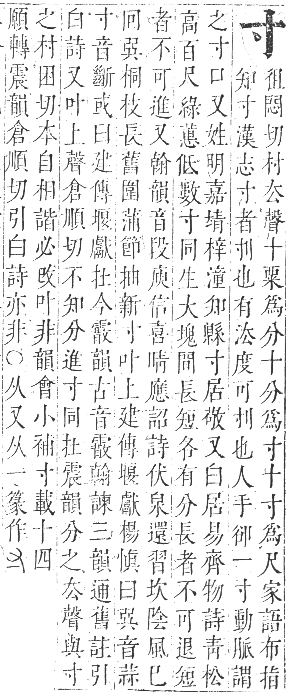 寸 徂悶切村去聲十𥹭爲分十分爲寸十寸爲尺家語布指
知寸漢志寸者忖也有法度可忖也人手卻一寸動脈謂
之寸口又姓明嘉靖梓潼知縣寸居敬又白居易齊物詩靑松
高百尺綠蕙低數寸同生大塊間長短各有分長者不可退短
者不可進又翰韻音段庾信喜晴應詔詩伏泉還習坎陰風巳
回巽桐枝長舊圍蒲節抽新寸叶上建傳堰獻楊愼曰巽音蒜
寸音斷或曰建傳堰獻在今霰韻古音霰翰諫三韻通舊註引
白詩又叶上聲倉順切不知分進寸同在震韻分之去聲與寸
之村困切本自相諧必改叶非韻會小補寸載十四
願轉震韻倉順切引白詩亦非○从又从一篆作